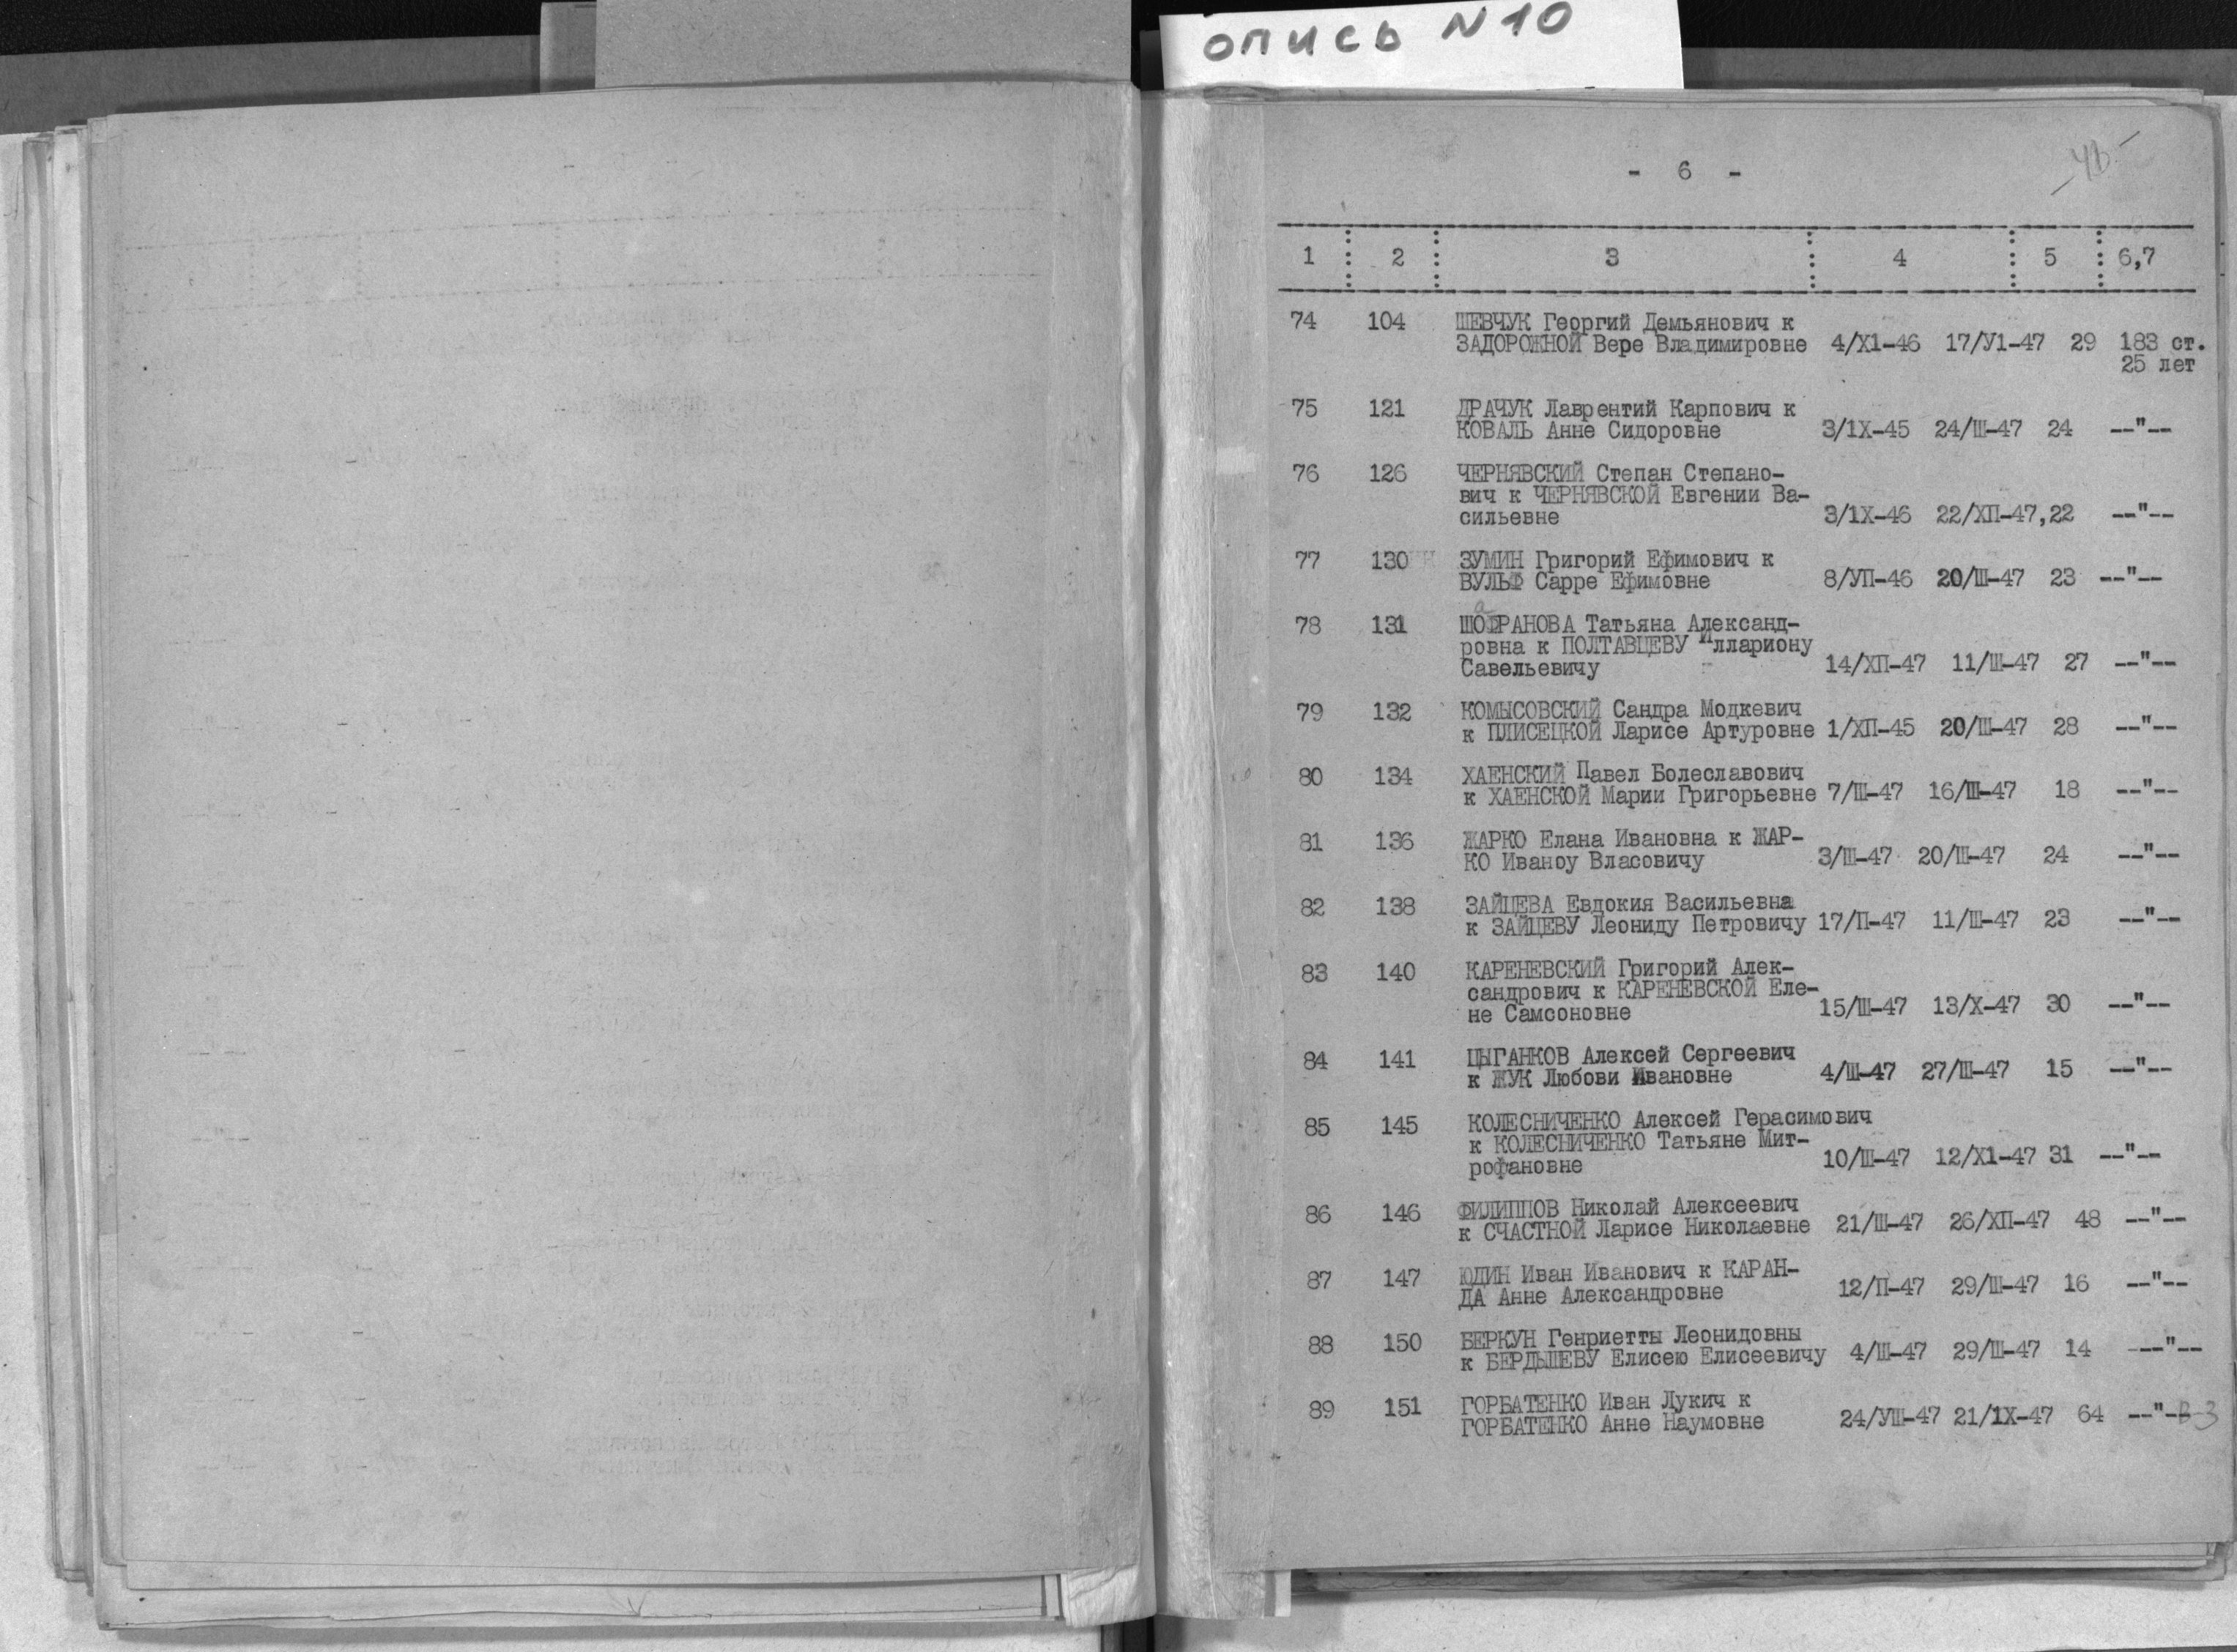 опись N10
- 6 -
1 : 2 : 3 : 4 : 5 : 6,7
74 104 ШЕВЧУК Георгий Демьянович к
ЗАДОРОЖНОЙ Вере Владимировне 4/Х1-46 17/У1-47 29 183 ст.
25 лет
75 121 ДРАЧУК Лаврентий Карпович к
КОВАЛЬ Анне Сидоровне 3/1Х-45 24/Ш-47 24 --"--
76 126 ЧЕРНЯВСКИЙ Степан Степано-
вич к ЧЕРНЯВСКОЙ Евгении Ва-
сильевне 3/1Х-46 22/ХП-47,22 --"--
77 130 ЗУМИН Григорий Ефимович к
ВУЛЬФ Сарре Ефимовне 8/УП-46 20/Ш-47 23 --"--
78 131 ШАФРАНОВА Татьяна Александ-
ровна к ПОЛТАВЦЕВУ Иллариону
Савельевичу 14/ХП-47 11/Ш-47 27 --"--
79 132 КОМЫСОВСКИЙ Сандра Модкевич
к ПЛИСЕЦКОЙ Ларисе Артуровне 1/ХП-45 20/Ш-47 28 --"--
80 134 ХАЕНСКИЙ Павел Болеславович
к ХАЕНСКОЙ Марии Григорьевне 7/Ш-47 16/Ш-47 18 --"--
81 136 ЖАРКО Елана Ивановна к ЖАР-
КО Иваноу Власовичу 3/Ш-47 20/Ш-47 24 --"--
82 138 ЗАЙЦЕВА Евдокия Васильевна
к ЗАЙЦЕВУ Леониду Петровичу 17/П-47 11/Ш-47 23 --"--
83 140 КАРЕНЕВСКИЙ Григорий Алек-
сандрович к КАРЕНЕВСКОЙ Еле-
не Самсоновне 15/Ш-47 13/Х-47 30 --"--
84 141 ЦЫГАНКОВ Алексей Сергеевич
к ЖУК Любови Ивановне 4/Ш-47 27/Ш-47 15 --"--
85 145 КОЛЕСНИЧЕНКО Алексей Герасимович
к КОЛЕСНИЧЕНКО Татьяне Мит-
рофановне 10/Ш-47 12/Х1-47 31 --"--
86 146 ФИЛИППОВ Николай Алексеевич
к СЧАСТНОЙ Ларисе Николаевне 21/Ш-47 26/ХП-47 48 --"--
87 147 ЮДИН Иван Иванович к КАРАН-
ДА Анне Александровне 12/П-47 29/Ш-47 16 --"--
88 150 БЕРКУН Генриетты Леонидовны
к БЕРДЫШЕВУ Елисею Елисеевичу 4/Ш-47 29/Ш-47 14 --"--
89 151 ГОРБАТЕНКО Иван Лукич к
ГОРБАТЕНКО Анне Наумовне 24/УШ-47 21/1Х-47 64 --"--